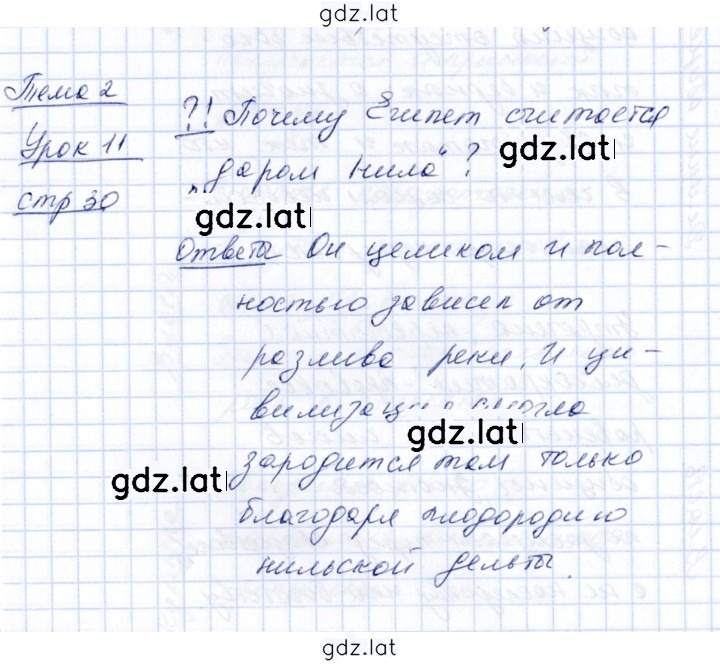 gdz.lat
Тема 2
Урок 11
стр 30
?! Почему Египет считается
gdz.lat
„даром Нила“?
gdz.lat
Ответы Он целиком и пол-
ностью зависел от
разлива реки. И ци-
вилизация смогла
gdz.lat
зародится там только
gdz.lat
благодаря плодородию
нильской дельты.
gdz.lat